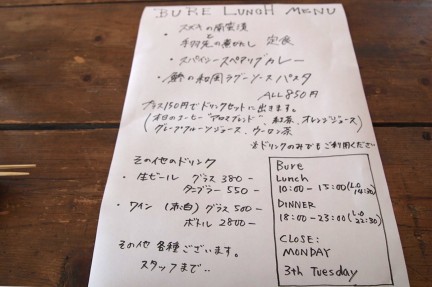 BURE LUNCH MENU
・スズキの南蛮漬
と
手羽先の煮おろし 定食
・スパイシースペアリブカレー
・鯵の和風ラグーソースパスタ
ALL 850円
プラス150円でドリンクセットに出きます。
(本日のコーヒー"アロマブレンド"、紅茶、オレンジジュース
グレープフルーツジュース、ウーロン茶)
※ドリンクのみでもご利用ください
その他のドリンク
・生ビール グラス 380-
タンブラー 550-
・ワイン (赤・白) グラス 500-
ボトル 2800-
その他 各種ございます。
スタッフまで‥
Bure
Lunch
10:00-15:00(L.O 14:30)
DINNER
18:00-23:00(L.O 22:30)
CLOSE:
MONDAY
3th Tuesday